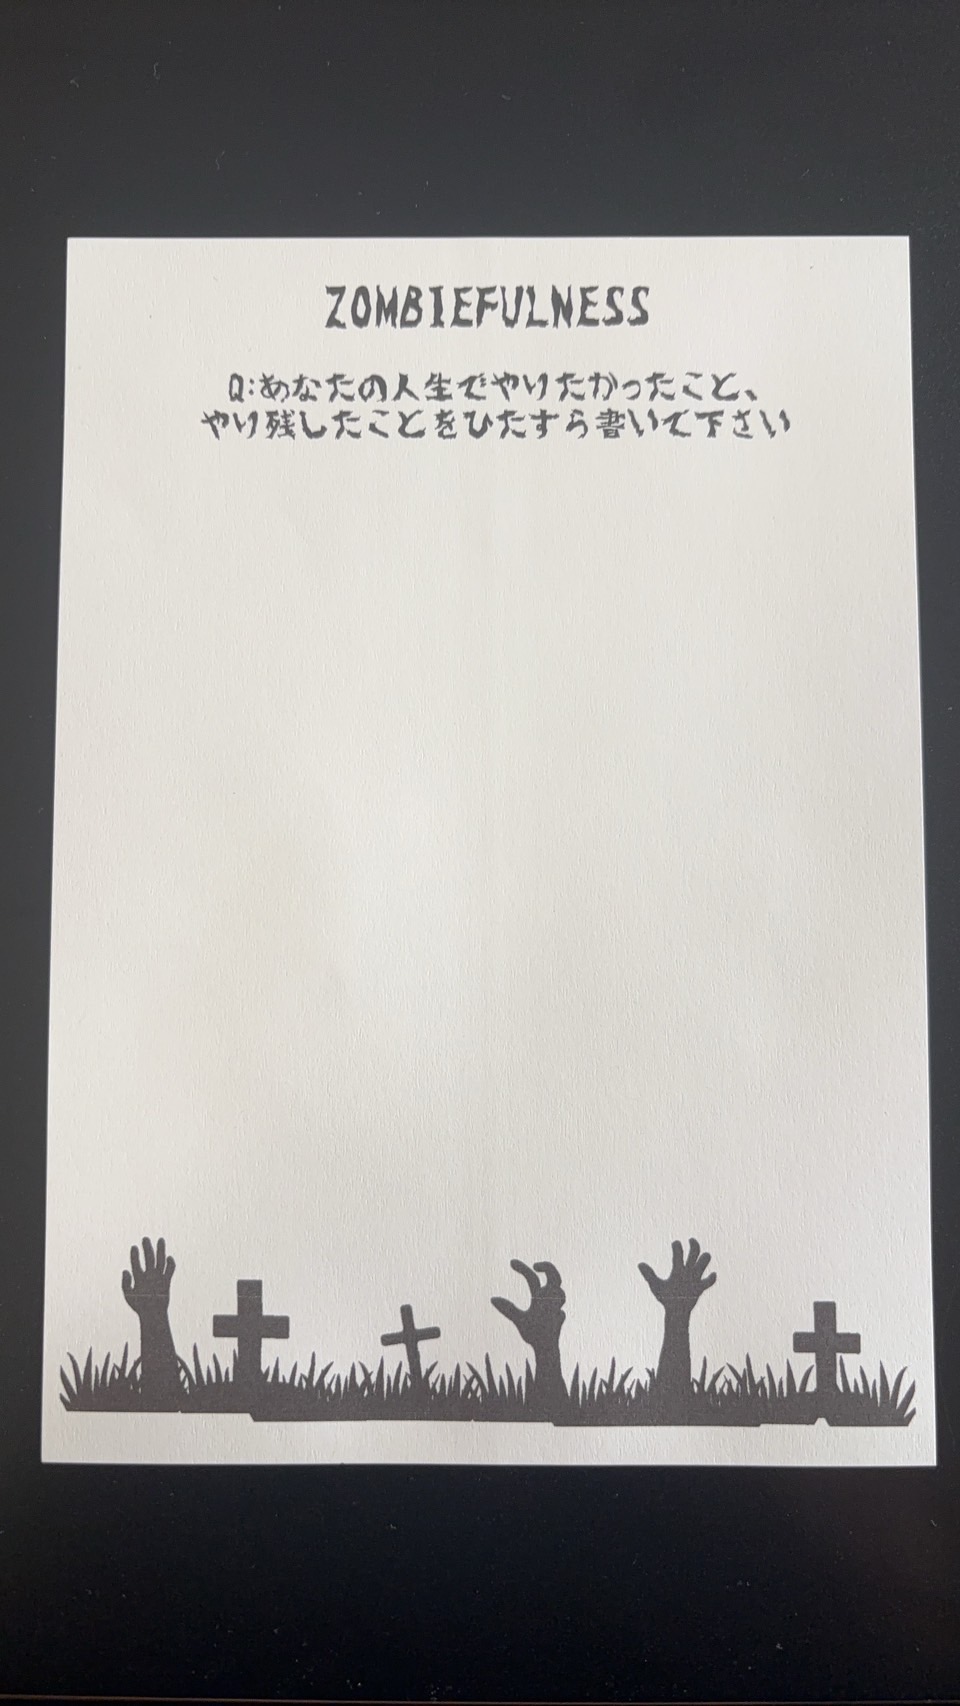 ZOMBIEFULNESS
Q:あなたの人生でやりたかったこと、
やり残したことをひたすら書いて下さい